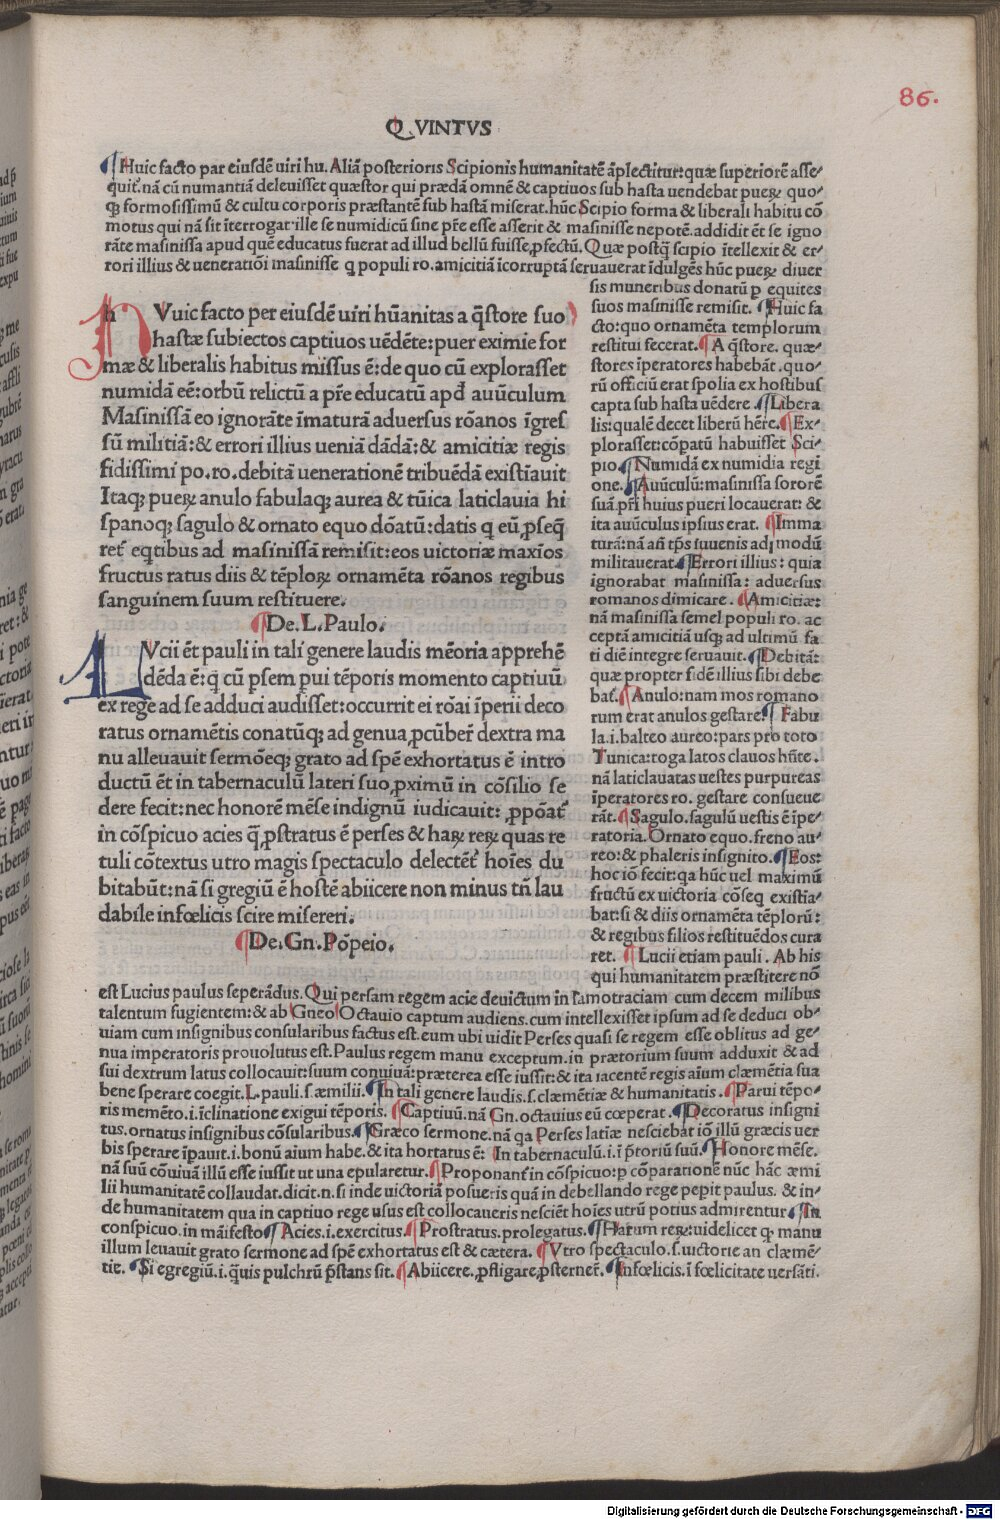 86.
Q.VINTVS
¶Huic facto par eiusdē uiri hu. Aliā posterioris Scipionis humanitatē āplectitur:quæ superiorē asse⸗
quit᷑.nā cū numantiā deleuisset quæstor qui prædā omnē & captiuos sub hasta uendebat pueꝝ quo⸗
qꝫ formosissimū & cultu corporis præstantē sub hastā miserat.hūc Scipio forma & liberali habitu cō
motus qui nā sit īterrogat·ille se numidicū sine pr̄e esse asserit & masinisse nepotē.addidit ēt se igno
rāte masinissa apud quē educatus fuerat ad illud bellū fuisse ꝓfectū.Quæ postꝗ̄ scipio ītellexit & er⸗
rori illius & ueneratiōi masinisse q populi ro.amicitiā īcorruptā seruauerat īdulgēs hūc pueꝝ diuer
sis muneribus donatū ꝑ equites
suos masinisse remisit. ¶Huic fa
cto:quo ornamēta templorum
restitui fecerat.¶A q̄store. quæ⸗
stores īperatores habebāt.quo⸗
rū officiū erat spolia ex hostibus
capta sub hasta uēdere.¶Libera
lis:qualē decet liberū hēre.¶Ex⸗
plorasset:cōpatū habuisset Sci⸗
pio.¶Numidā ex numidia regi
one.¶Auūculū:masinissa sororē
suā.pr̄i huius pueri locauerat: &
ita auūculus ipsius erat. ¶Imma
turā:nā añ tp̄s iuuenis ad modū
militauerat.¶Errori illius: quia
ignorabat masinissa: aduersus
romanos dimicare. ¶Amicitiæ:
nā masinissa semel populi ro. ac
ceptā amicitiā usqꝫ ad ultimū fa
ti diē integre seruauit.¶Debitā:
quæ propter fidē illius sibi debe
bat᷑.¶Anulo:nam mos romano
rum erat anulos gestare.¶ Fabu
la.i.balteo aureo:pars pro toto
Tunica:toga latos clauos hn̄te.
nā laticlauatas uestes purpureas
īperatores ro. gestare consueue
rāt.¶Sagulo.sagulū uestis ē īpe⸗
ratoria.Ornato equo.freno au⸗
reo:& phaleris insignito.¶Eos:
hoc iō fecit:qa hūc uel maximū
fructū ex uictoria cōseq existīa⸗
bat:si & diis ornamēta tēplorū:
& regibus filios restituēdos cura
ret. ¶ Lucii etiam pauli. Ab his
qui humanitatem præstitere nō
h Vuic facto per eiusdē uiri hūanitas a q̄store suo
hastæ subiectos captiuos uēdēte:puer eximie for
mæ & liberalis habitus missus ē:de quo cū explorasset
numidā eē:orbū relictū a pr̄e educatū apd̄ auūculum
Masinissā eo ignorāte īmaturā aduersus rōanos īgres
sū militiā:& errori illius ueniā dādā:& amicitiæ regis
fidissimi po.ro.debitā uenerationē tribuēdā existīauit
Itaqꝫ pueꝝ anulo fabulaqꝫ aurea & tūica laticlauia hi
spanoqꝫ sagulo & ornato equo dōatū:datis q eū ꝓseq̄
ret᷑ eqtibus ad masinissā remisit:eos uictoriæ maxīos
fructus ratus diis & tēploꝝ ornamēta rōanos regibus
sanguinem suum restituere.
¶De.L.Paulo.
L Vcii ēt pauli in tali genere laudis mēoria apprehē
dēda ē:q̄ cū ꝑsem ꝑui tēporis momento captiuū
ex rege ad se adduci audisset:occurrit ei rōai īperii deco
ratus ornamētis conatūqꝫ ad genua ꝓcūber̄ dextra ma
nu alleuauit sermōeqꝫ grato ad spē exhortatus ē intro
ductū ēt in tabernaculū lateri suo ꝓximū in cōsilio se
dere fecit:nec honorē mēse indignū iudicauit: ꝓpōat᷑
in cōspicuo acies q̄ ꝓstratus ē perses & haꝝ reꝝ quas re
tuli cōtextus utro magis spectaculo delectēt᷑ hoīes du
bitabūt:nā si gregiū ē hostē abiicere non minus tn̄ lau
dabile infœlicis scire misereri.
¶De.Gn.Pōpeio.
est Lucius paulus seperādus.Qui persam regem acie deuictum in samotraciam cum decem milibus
talentum fugientem:& ab Gneo Octauio captum audiens.cum intellexisset ipsum ad se deduci ob⸗
uiam cum insignibus consularibus factus est.eum ubi uidit Perses quasi se regem esse oblitus ad ge⸗
nua imperatoris prouolutus est.Paulus regem manu exceptum.in prætorium suum adduxit & ad
sui dextrum latus collocauit:suum conuiuā:præterea esse iussit:& ita iacentē regis aīum clæmētia sua
bene sperare coegit.L.pauli.s.æmilii.¶In tali genere laudis.s.clæmētiæ & humanitatis.¶Parui tēpo⸗
ris memēto.i.īclinatione exigui tēporis. ¶Captiuū.nā Gn.octauius eū cœperat.¶Decoratus insigni
tus.ornatus insignibus cōsularibus.¶Græco sermone.nā qa Perses latiæ nesciebat iō illū græcis uer
bis sperare īpauit.i.bonū aium habe.& ita hortatus ē: In tabernaculū.i.ī p̄toriū suū.¶Honore mēse.
nā suū cōuiuā illū esse iussit ut una epularetur.¶Proponant᷑ in cōspicuo:ꝑ cōparationē nūc hāc æmi
lii humanitatē collaudat.dicit.n.si inde uictoriā posueris quā in debellando rege pepit paulus. & in⸗
de humanitatem qua in captiuo rege usus est collocaueris nesciēt hoies utrū potius admirentur.¶In
conspicuo.in māifesto.¶Acies.i.exercitus.¶Prostratus.prolegatus.¶Harum reꝝ:uidelicet q. manu
illum leuauit grato sermone ad spē exhortatus est & cætera. ¶Vtro spectaculo.s.uictorie an clæmē⸗
tie. ¶Si egregiū.i.q̄uis pulchrū p̄stans sit.¶Abiicere.ꝓfligare ꝓsterner̄.¶Infœlicis.ī fœlicitate uersāti.
Digitalisierung gefördert durch die Deutsche Forschungsgemeinschaft - DFG